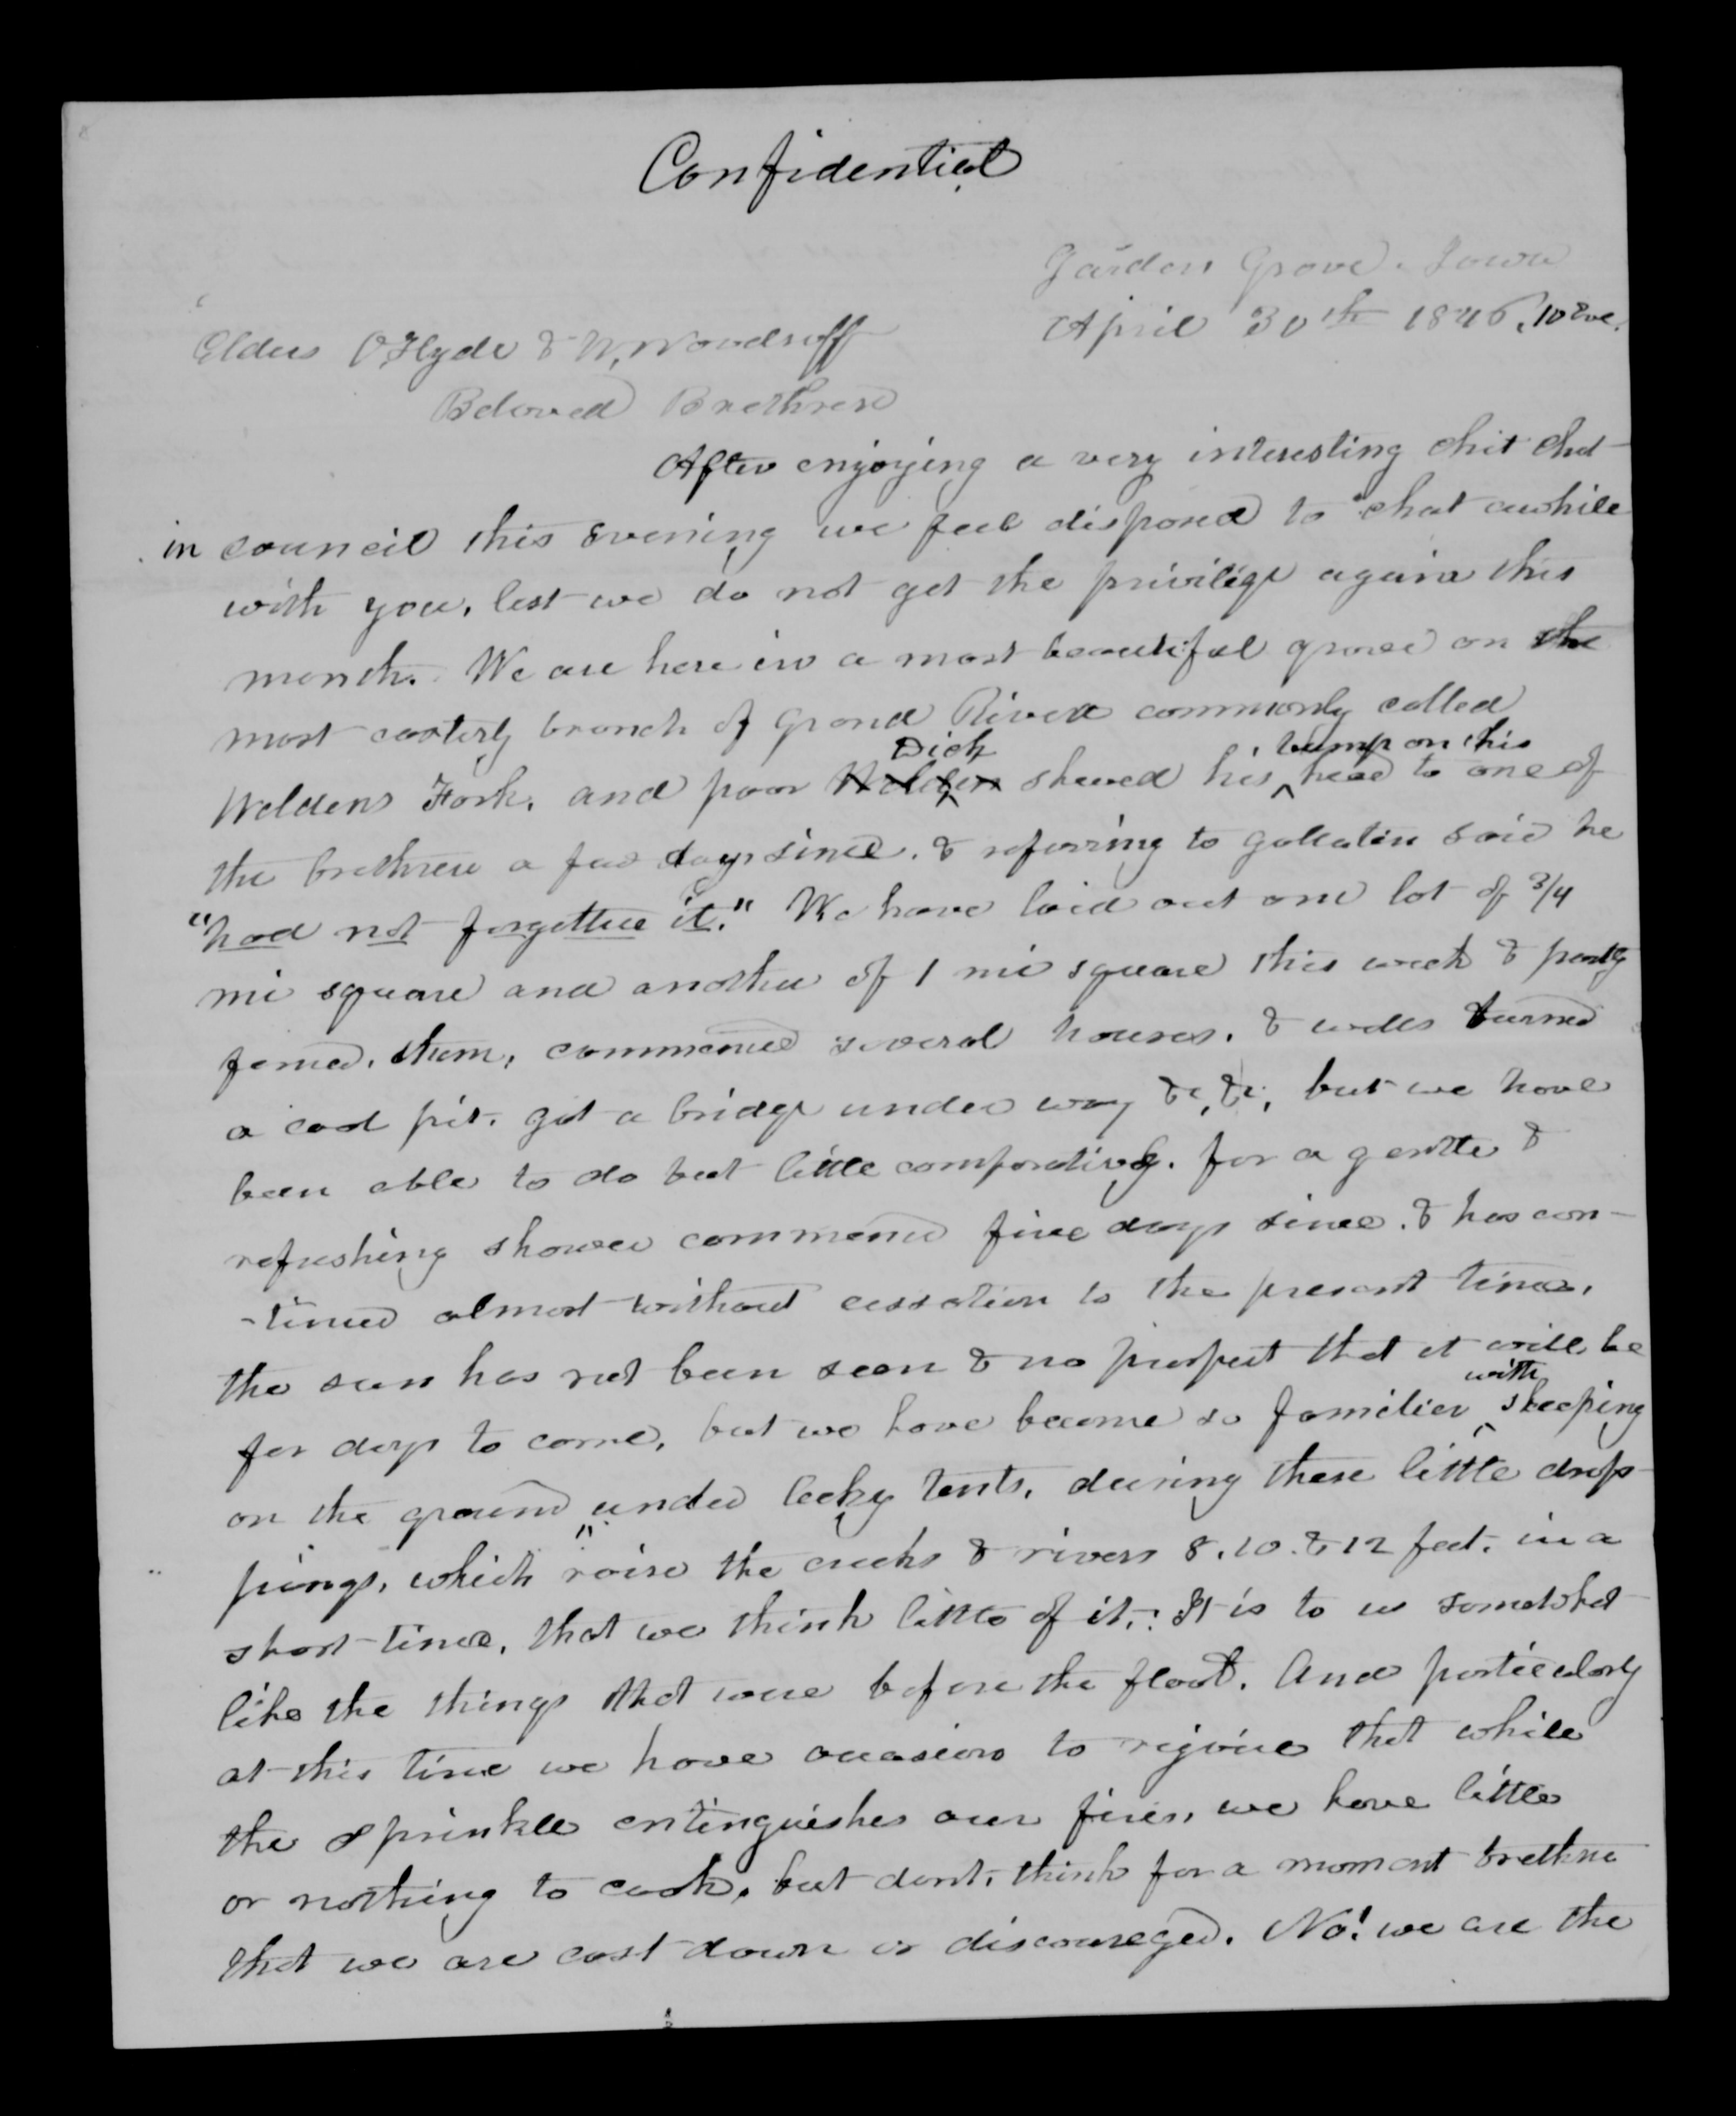 Confidential
Garden Grove. Iowa
April 30th 1846, 10 Eve.
Elders O Hyde & W, Woodruff
Beloved Brethren
After enjoying a very interesting chit chat
in council this evening we feel disposed to chat awhile
with you, lest we do not get the privilige again this
month. We are here in a most beautiful grove on the
most easterly branch of Grand River commonly called
Dick , bump on his
Weldens Fork, and poor Welden shewed his head to one of
the brethren a few days since. & referring to gallatin said he
"had not forgotten it." We have laid out one lot of 3/4
mi square and another of 1 mi square this week & partly
fenced, them, commenced several houses, & wells burned
a coal pit. got a bridge under way &c, &c, but we have
been able to do but little comparatively. for a gentle &
refreshing shower commenced five days since. & has con-
-tinued almost without cessation to the present time,
the sun has not been seen & no prospect that it will be
with
for days to come, but we have become so familiar sleeping
on the ground under leeky tents, during these little drop-
pings, which "raise the creeks & rivers 8, 10. & 12 feet. in a
short time, that we think little of it,: It is to us somewhat
like the things that were before the flood. And particularly
at this time we have occasion to rejoice that while
the sprinkle extinguishes our fires, we have little
or nothing to cook, but dont, think for a moment brethren
that we are cast down or discouraged. No! we are the